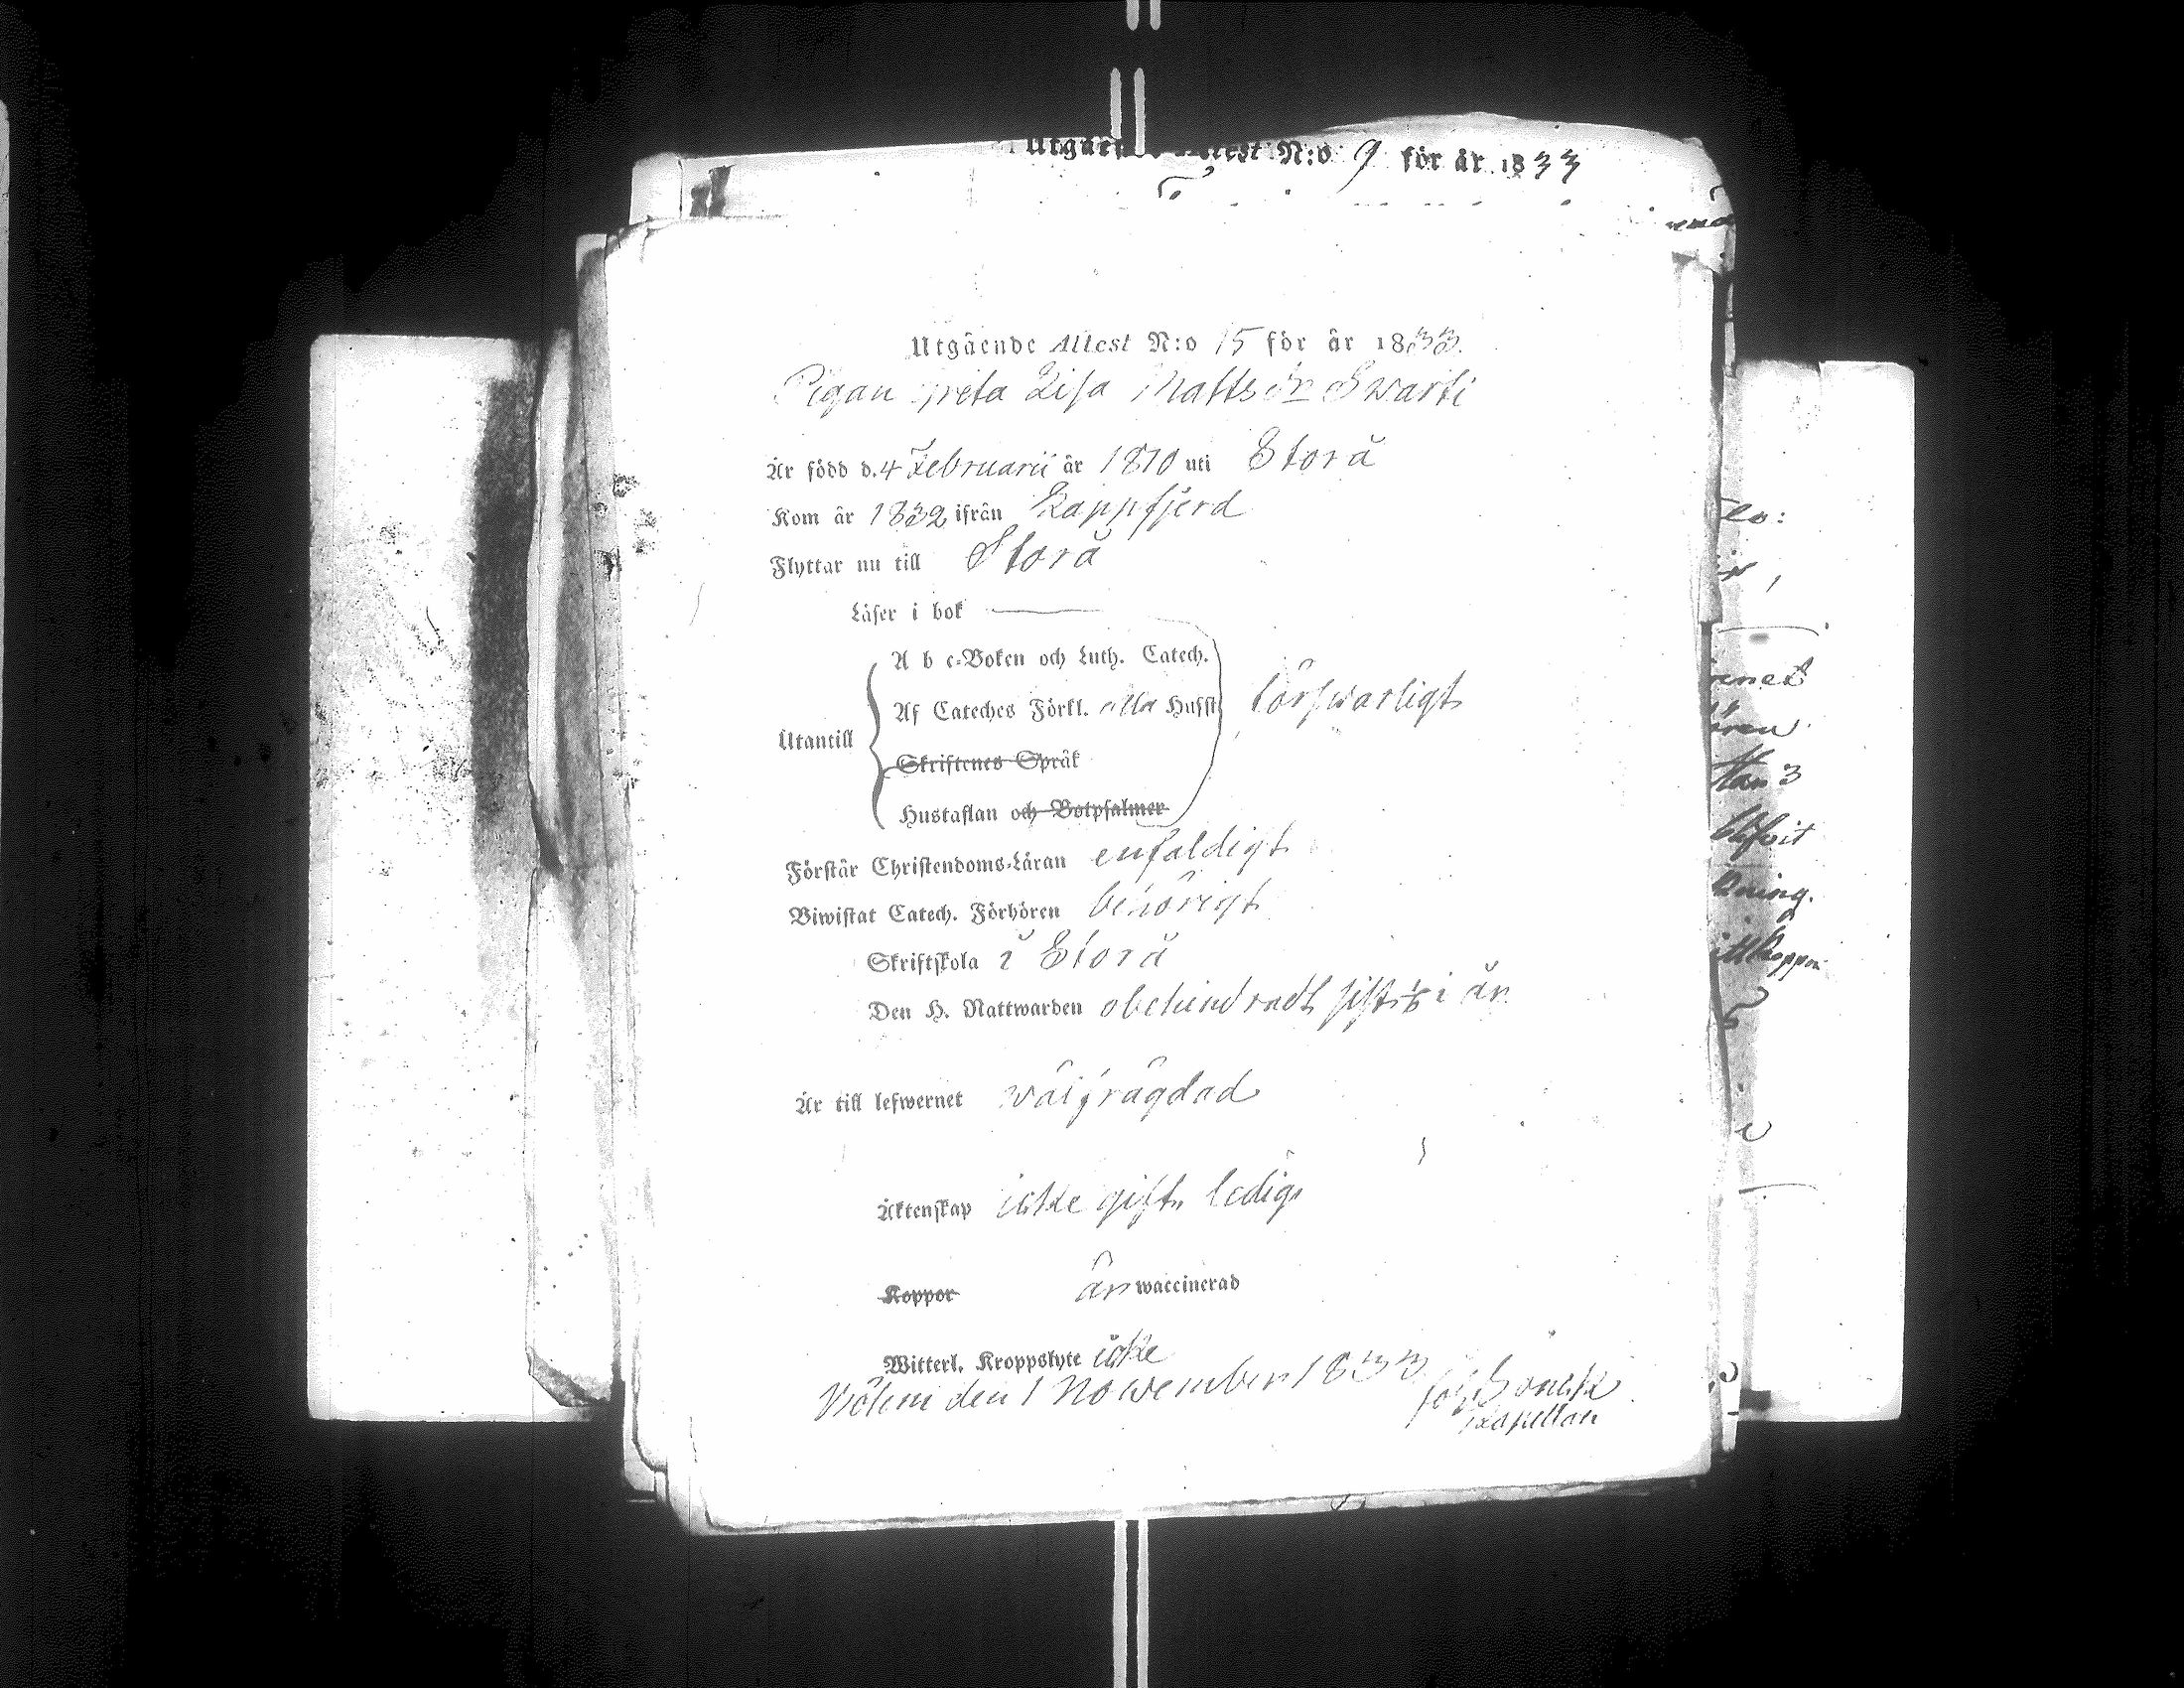 Utgåen Attest N:o 9 för år 1833
Utgående Attest N:o 15 för år 1833.
Pigan Greta Lisa Mattsdr Swarti
Är född d. 4 Februarii år 1810 uti Storå
Kom år 1832 ifrån Lappfjerd
Flyttar nu till Storå
Läser i bok
A b c-Boken och Luth. Catech.
Af Cateches Förkl. alla Husst försvarligt
Utantill
Skriftenes Språk
Hustaflan och Botpsalmer
Förstår Christendoms-Läran enfaldigt
Biwistat Catech. Förhören behörigt
Skriftskola i Storå
Den H. Nattwarden obehindradt sist i år
Är till lefwernet wälfrägdad
Äktenskap icke gift, ledig
Koppor är waccinerad
Witterl. Kroppslyte icke
den 1 November 1833
Kapellan